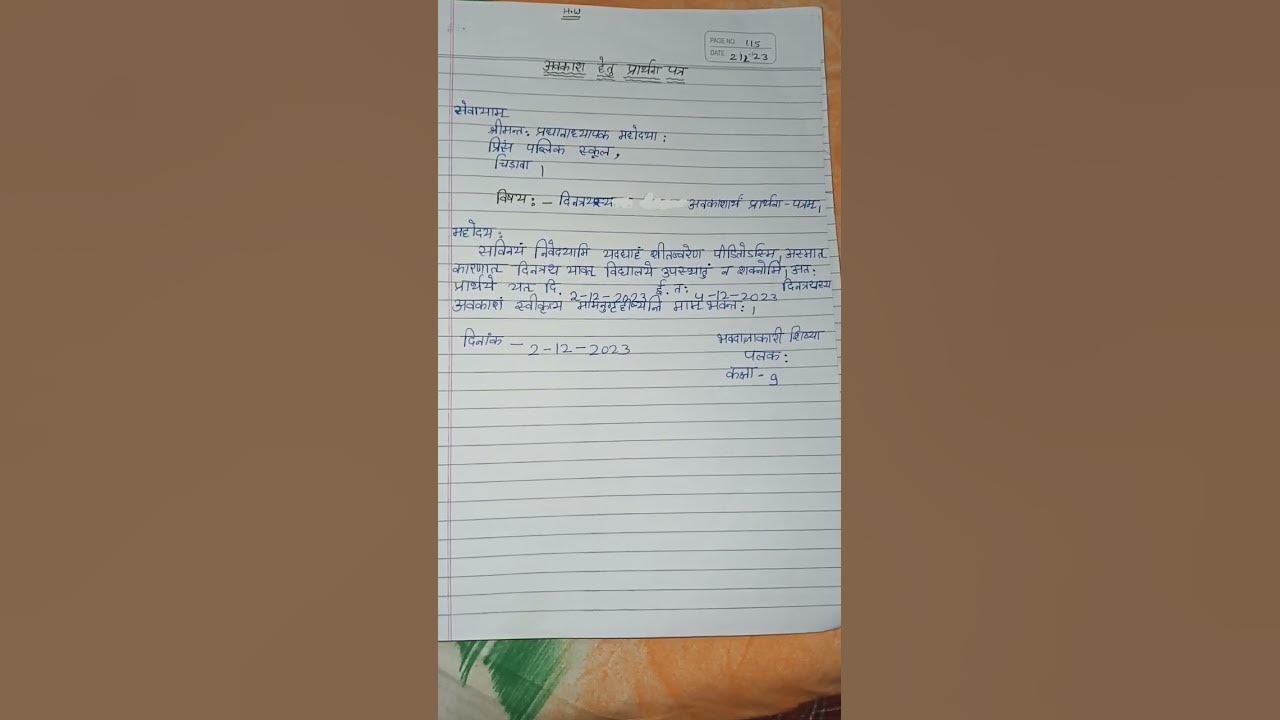 H.W
PAGE NO. 115
DATE 2/12/23
अवकाश हेतु प्रार्थना पत्र
सेवायाम
श्रीमन्त: प्रधानाध्यापक महोदया:
प्रिंस पब्लिक स्कूल,
चिडावा ।
विषय: - दिनत्रयस्य अवकाशार्थ प्रार्थना-पत्रम् ।
महोदय:
सविनयं निवेदयामि यदद्याहं शीतज्वरेण पीडितोऽस्मि, अस्मात
कारणात दिनत्रय यावत विद्यालये उपस्थातुं न शक्नोमि, अत:
प्रार्थये यत दि. 2-12-2023 ई. त: 4-12-2023 दिनत्रयस्य
अवकाशं स्वीकृत्य माम भवन्त: ।
दिनांक - 2-12-2023
भवदाज्ञाकारी शिष्या
पलक:
कक्षा - 9